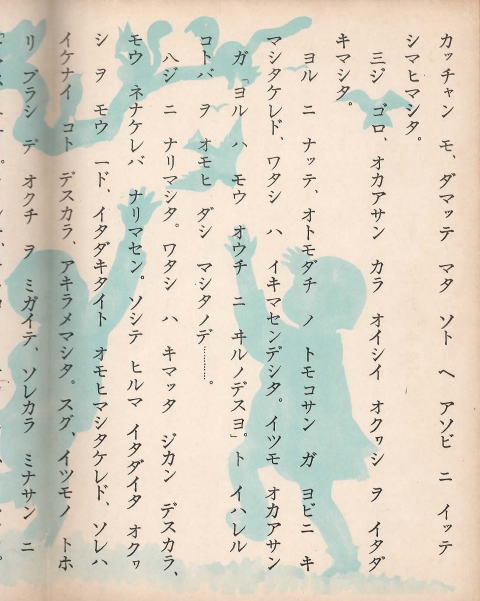 カッチャン モ、ダマッテ マタ ソト ヘ アソビ ニ イッテ
シマヒマシタ。
三ジ ゴロ、オカアサン カラ オイシイ オクヮシ ヲ イタダ
キマシタ。
ヨル ニ ナッテ、オトモダチ ノ トモコサン ガ ヨビニ キ
マシタケレド、ワタシ ハ イキマセンデシタ。イツモ オカアサン
ガ「ヨル ハ モウ オウチ ニ ヰルノデスヨ」。ト イハレル
コトバ ヲ オモヒ ダシ マシタノデ………。
ハジ ニ ナリマシタ。ワタシ ハ キマッタ ジカン デスカラ、
モウ ネナケレバ ナリマセン。ソシテ ヒルマ イタダイタ オクヮ
シ ヲ モウ 一ド、イタダキタイト オモヒマシタケレド、ソレハ
イケナイ コト デスカラ、アキラメマシタ。スグ、イツモノ トホ
リ ブラシ デ オクチ ヲ ミガイテ、ソレカラ ミナサン ニ